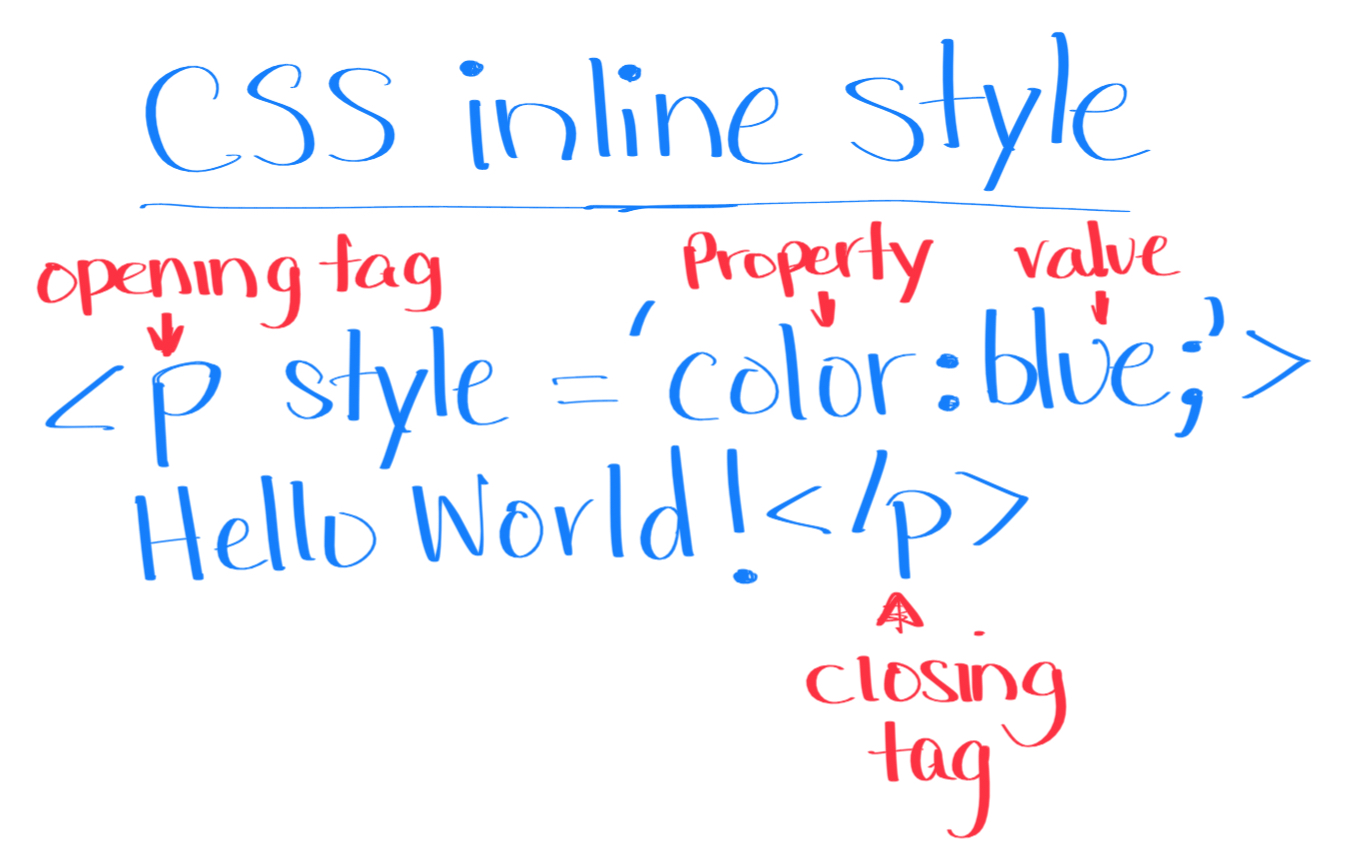 CSS inline style
opening tag Property value
<p style = 'color:blue;'>
Hello World!</p>
closing
tag